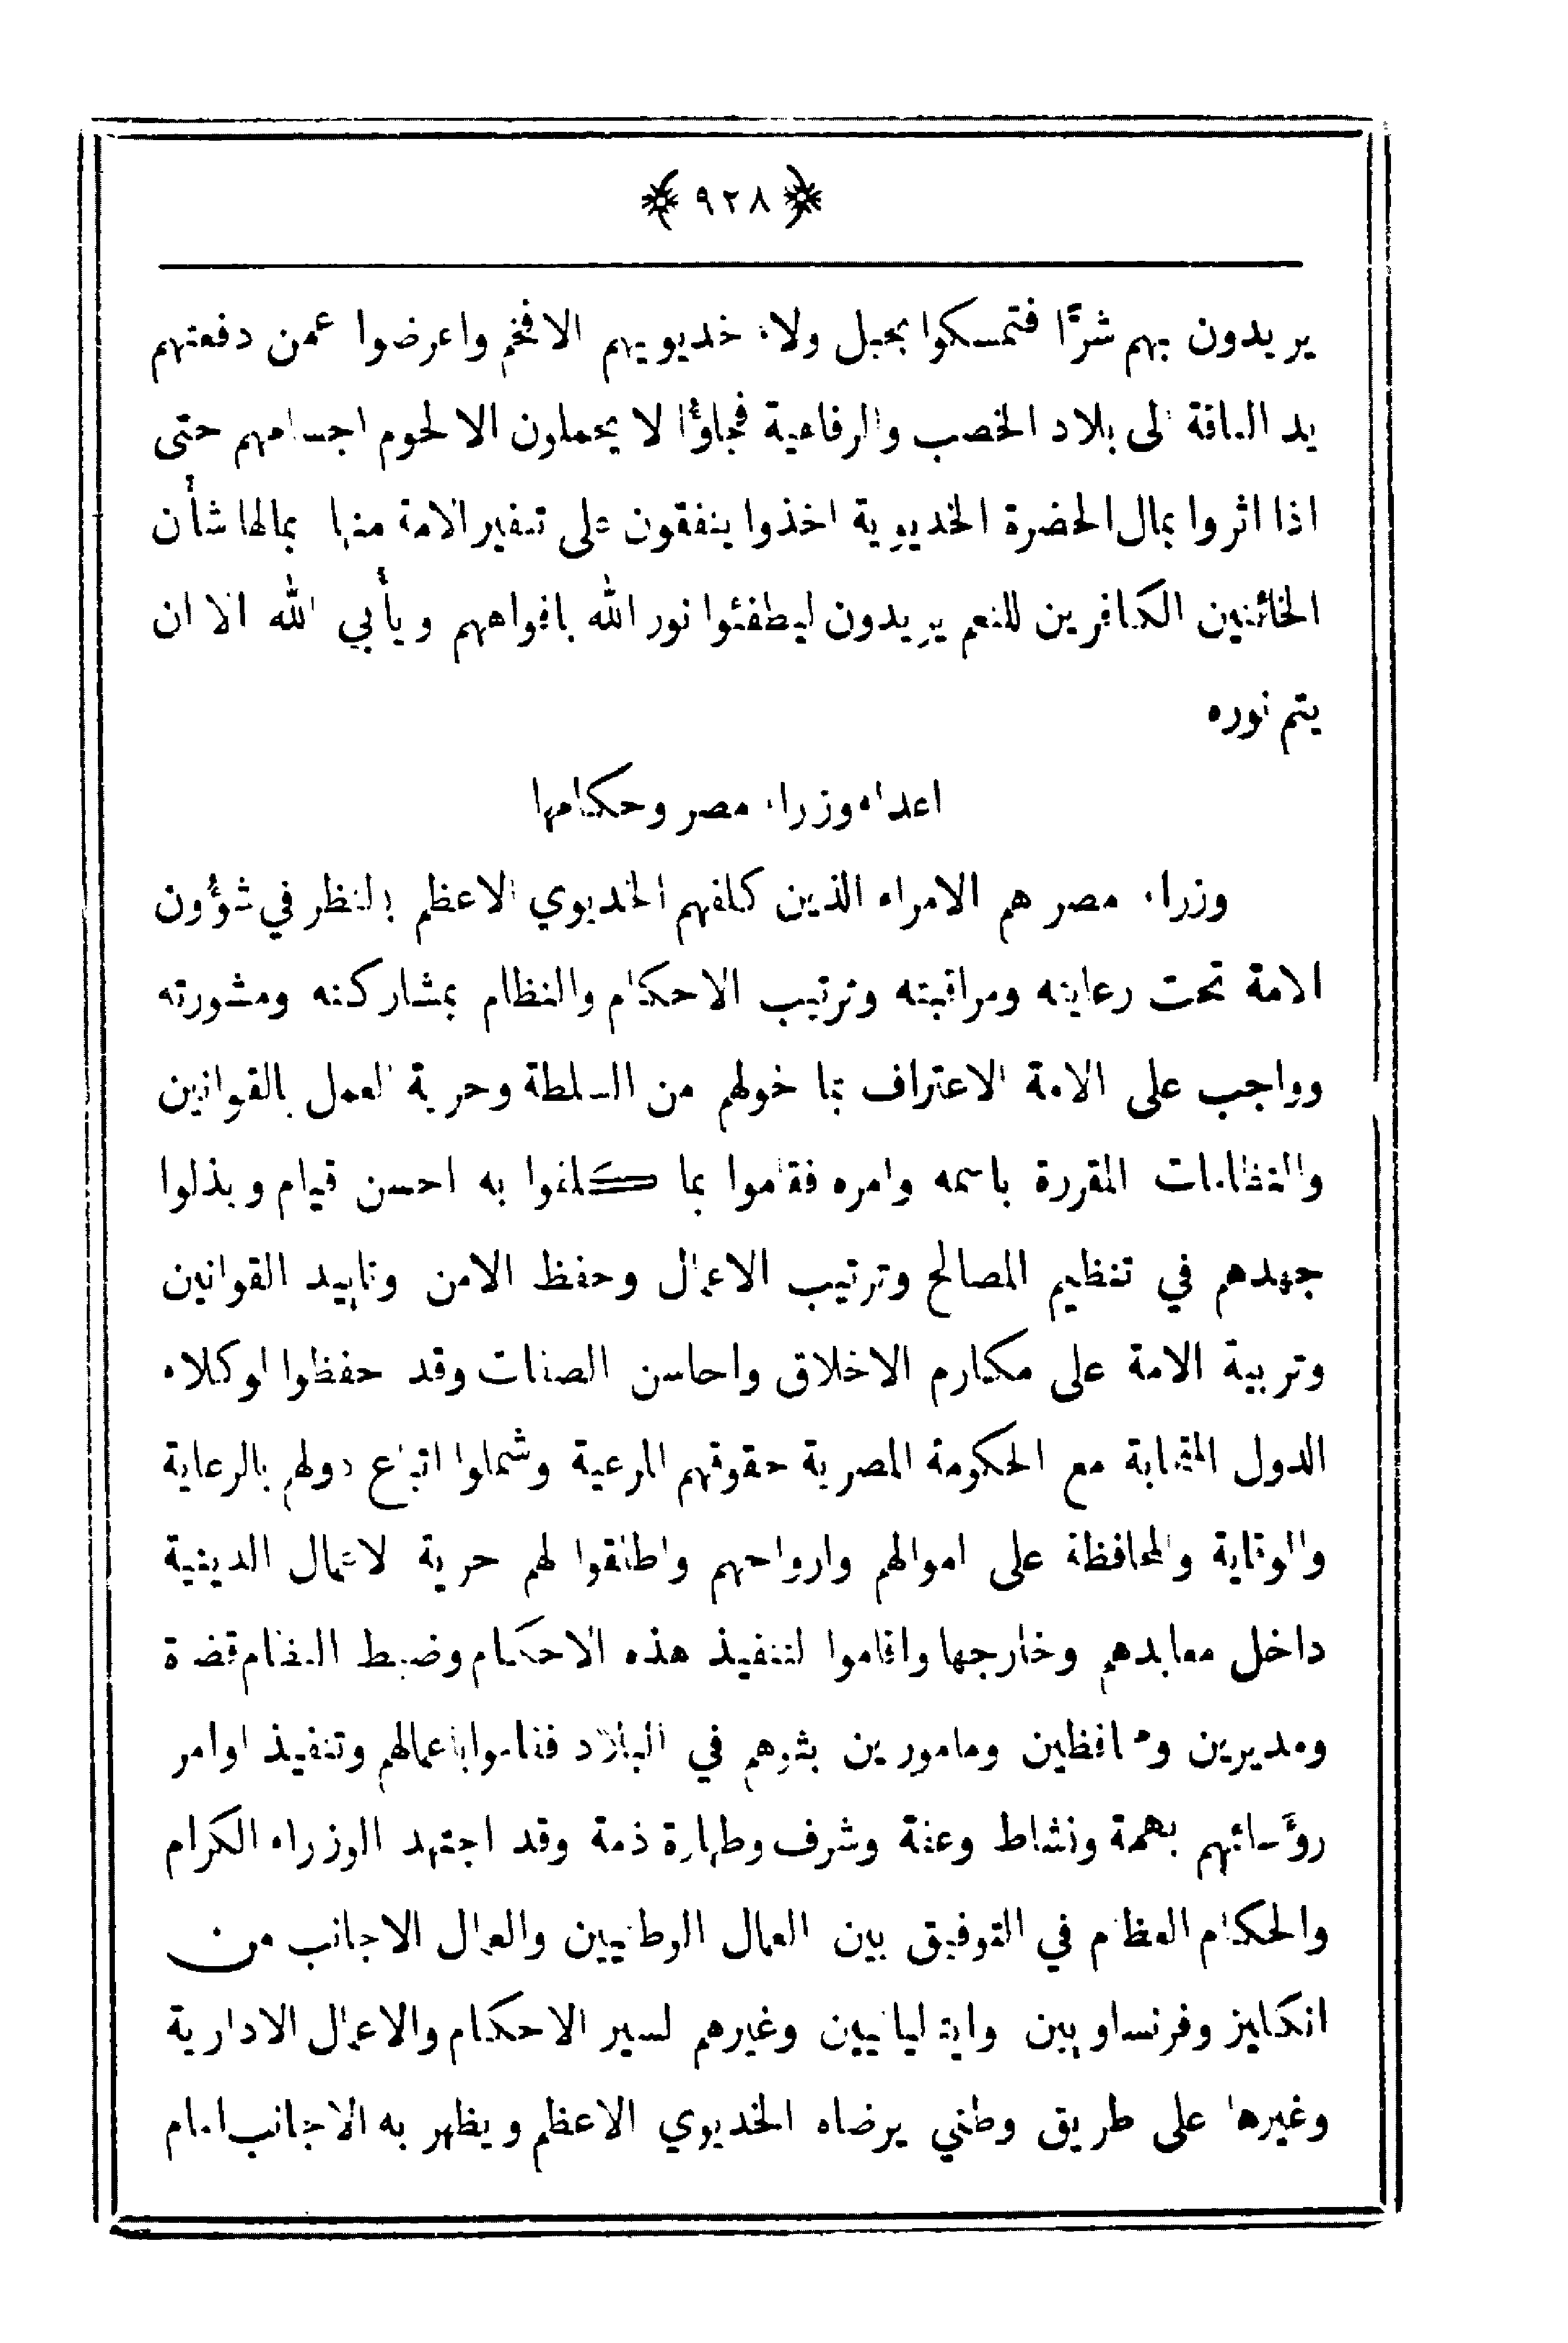 ﴿ ٩٢٨ ﴾
يريدون بهم شرًّا فتمسكوا بحبل ولاء خديويهم الافخم واعرضوا عمن دفعتهم
يد الفاقة الى بلاد الخصب والرفاهية فجاؤا لا يحملون الا لحوم اجسامهم حتى
اذا اثروا بمال الحضرة الخديوية اخذوا ينفقون على تنفير الامة منها بمالها شأن
الخائنين الكافرين للنعم يريدون ليطفئوا نور الله بافواههم ويأبي الله الا ان
يتم نوره
اعداء وزراء مصر وحكامها
وزراء مصر هم الامراء الذين كلفهم الخديوي الاعظم بالنظر في شؤون
الامة تحت رعايته ومراقبته وترتيب الاحكام والنظام بمشاركته ومشورته
وواجب على الامة الاعتراف بما خولهم من السلطة وحرية العمل بالقوانين
والنظامات المقررة باسمه وامره فقاموا بما كلفوا به احسن قيام وبذلوا
جهدهم في تنظيم المصالح وترتيب الاعمال وحفظ الامن وتاييد القوانين
وتربية الامة على مكارم الاخلاق واحاسن الصفات وقد حفظوا لوكلاء
الدول المتحابة مع الحكومة المصرية حقوقهم المرعية وشملوا اتباع دولهم بالرعاية
والوقاية والمحافظة على اموالهم وارواحهم واطلقوا لهم حرية الاعمال الدينية
داخل معابدهم وخارجها واقاموا لتنفيذ هذه الاحكام وضبط النظام قضاة
ومديرين ومحافظين ومامورين بثوهم في البلاد فقاموا باعمالهم وتنفيذ اوامر
رؤَسائهم بهمة ونشاط وعفة وشرف وطهارة ذمة وقد اجتهد الوزراء الكرام
والحكام العظام في التوفيق بين العمال الوطنيين والعمال الاجانب من
انكليز وفرنساويين وايتاليانيين وغيرهم لسير الاحكام والاعمال الادارية
وغيرها على طريق وطني يرضاه الخديوي الاعظم ويظهر به الاجانب امام